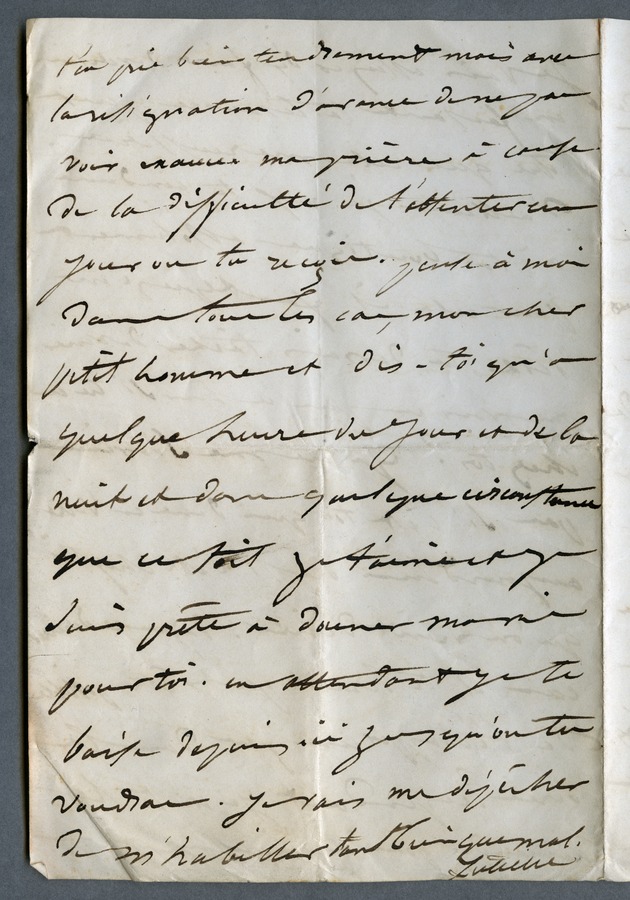 t'en prie bien tendrement mais avec
la résignation d'avance de ne pas
voir exaucer ma prière à cause
de la difficulté de s'absenter un
jour où tu reçois. pense à moi
dans tous les cas, mon cher
petit homme et dis-toi qu'à
quelque heure du jour et de la
nuit et dans quelque circonstance
que ce soit je t'aime et je
suis prête à donner ma vie
pour toi. en attendant je te
baise depuis ici jusqu'où tu
voudras. je vais me dépêcher
de m'habiller tant bien que mal.
Juliette